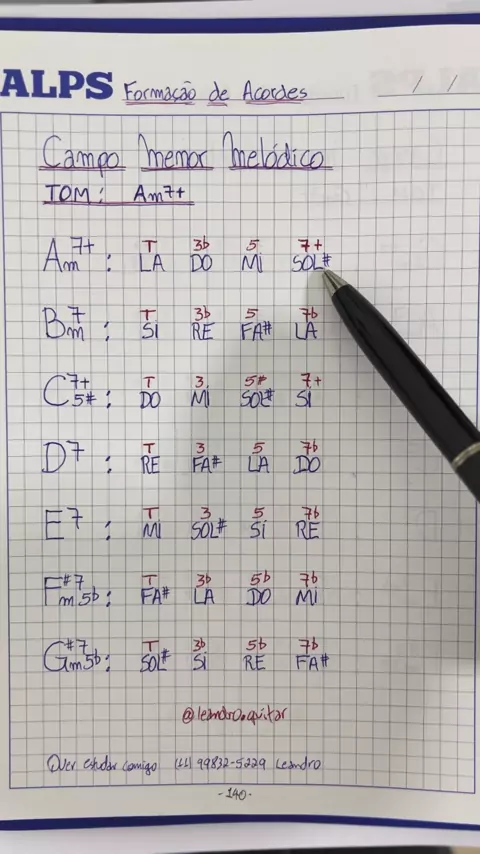 ALPS Formação de Acordes / /
Campo Menor Melódico
TOM: Am7+
T 3b 5 7+
Am7+: LA DO Mi SOL#
T 3b 5 7b
Bm7: Si RE FA# LA
T 3 5# 7+
C7+5#: DO Mi SOL# Si
T 3 5 7b
D7: RE FA# LA DO
T 3 5 7b
E7: Mi SOL# Si RE
T 3b 5b 7b
F#7m5b: FA# LA DO Mi
T 3b 5b 7b
G#7m5b: SOL# Si RE FA#
@leandro.guitar
Quer estudar comigo (11) 99832-5229 Leandro
-140-